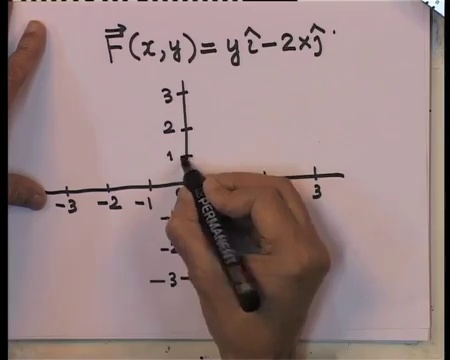 F⃗(x,y) = yî − 2xĵ
3
2
1
-3 -2 -1 3
-3
PERMANENT